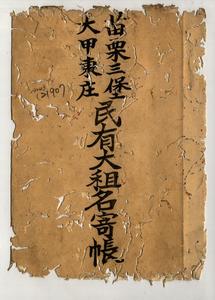 苗栗三堡
大甲東庄
民有大租名寄帳